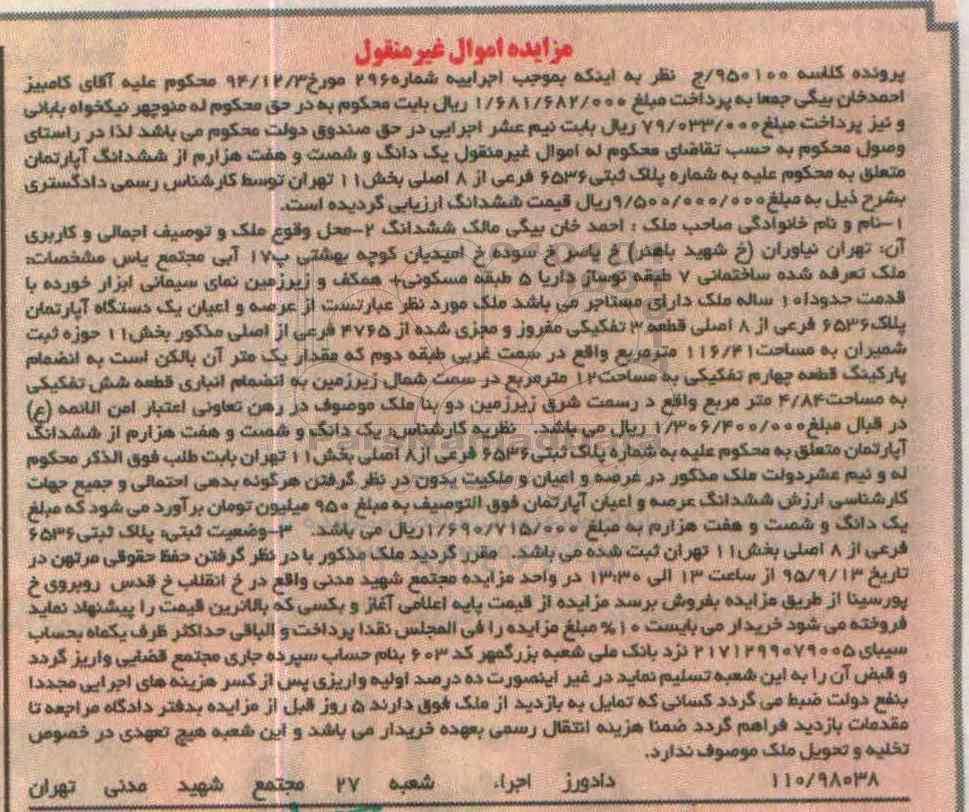 مزایده اموال غیرمنقول
پرونده کلاسه ۹۵۰۱۰۰/ج نظر به اینکه بموجب اجراییه شماره۲۹۶ مورخ۹۴/۱۲/۳ محکوم علیه آقای کامبیز
احمدخان بیگی جمعا به پرداخت مبلغ ۱/۶۸۱/۶۸۲/۰۰۰ ریال بابت محکوم به در حق محکوم له منوچهر نیکخواه بابانی
و نیز پرداخت مبلغ۷۹/۰۳۳/۰۰۰ ریال بابت نیم عشر اجرایی در حق صندوق دولت محکوم می باشد لذا در راستای
وصول محکوم به حسب تقاضای محکوم له اموال غیرمنقول یک دانگ و شصت و هفت هزارم از ششدانگ آپارتمان
متعلق به محکوم علیه به شماره پلاک ثبتی۶۵۳۶ فرعی از ۸ اصلی بخش۱۱ تهران توسط کارشناس رسمی دادگستری
بشرح ذیل به مبلغ۹/۵۰۰/۰۰۰/۰۰۰ریال قیمت ششدانگ ارزیابی گردیده است.
۱-نام و نام خانوادگی صاحب ملک : احمد خان بیگی مالک ششدانگ ۲-محل وقوع ملک و توصیف اجمالی و کاربری
آن: تهران نیاوران (خ شهید باهنر) خ یاسر خ سوده خ امیدیان کوچه بهشتی پ۱۷ آبی مجتمع یاس مشخصات:
ملک تعرفه شده ساختمانی ۷ طبقه نوساز داریا ۵ طبقه مسکونی+ همکف و زیرزمین نمای سیمانی ابزار خورده با
قدمت حدودا۱۰ ساله ملک دارای مستاجر می باشد ملک مورد نظر عبارتست از عرصه و اعیان یک دستگاه آپارتمان
پلاک۶۵۳۶ فرعی از ۸ اصلی قطعه ۳ تفکیکی مفروز و مجزی شده از ۴۷۶۵ فرعی از اصلی مذکور بخش۱۱ حوزه ثبت
شمیران به مساحت۱۱۶/۴۱ مترمربع واقع در سمت غربی طبقه دوم که مقدار یک متر آن بالکن است به انضمام
پارکینگ قطعه چهارم تفکیکی به مساحت۱۲ مترمربع در سمت شمال زیرزمین به انضمام انباری قطعه شش تفکیکی
به مساحت۴/۸۴ متر مربع واقع د رسمت شرق زیرزمین دو بنا ملک موصوف در رهن تعاونی اعتبار امن الائمه (ع)
در قبال مبلغ۱/۳۰۶/۴۰۰/۰۰۰ ریال می باشد. نظریه کارشناس: یک دانگ و شصت و هفت هزارم از ششدانگ
آپارتمان متعلق به محکوم علیه به شماره پلاک ثبتی۶۵۳۶ فرعی از۸ اصلی بخش۱۱ تهران بابت طلب فوق الذکر محکوم
له و نیم عشردولت ملک مذکور در عرصه و اعیان و ملکیت بدون در نظر گرفتن هرگونه بدهی احتمالی و جمیع جهات
کارشناسی ارزش ششدانگ عرصه و اعیان آپارتمان فوق التوصیف به مبلغ ۹۵۰ میلیون تومان برآورد می شود که مبلغ
یک دانگ و شصت و هفت هزارم به مبلغ ۱/۶۹۰/۷۱۵/۰۰۰ریال می باشد. ۳-وضعیت ثبتی: پلاک ثبتی۶۵۳۶
فرعی از ۸ اصلی بخش۱۱ تهران ثبت شده می باشد. مقرر گردید ملک مذکور با در نظر گرفتن حفظ حقوقی مرتهن در
تاریخ ۹۵/۹/۱۳ از ساعت ۱۳ الی ۱۳:۳۰ در واحد مزایده مجتمع شهید مدنی واقع در خ انقلاب خ قدس روبروی خ
پورسینا از طریق مزایده بفروش برسد مزایده از قیمت پایه اعلامی آغاز و بکسی که بالاترین قیمت را پیشنهاد نماید
فروخته می شود خریدار می بایست ۱۰% مبلغ مزایده را فی المجلس نقدا پرداخت و الباقی حداکثر ظرف یکماه بحساب
سیبای ۲۱۷۱۲۹۹۰۷۹۰۰۵ نزد بانک ملی شعبه بزرگمهر کد ۶۰۳ بنام حساب سپرده جاری مجتمع قضایی واریز گردد
و قبض آن را به این شعبه تسلیم نماید در غیر اینصورت ده درصد اولیه واریزی پس از کسر هزینه های اجرایی مجددا
بنفع دولت ضبط می گردد کسانی که تمایل به بازدید از ملک فوق دارند ۵ روز قبل از مزایده بدفتر دادگاه مراجعه تا
مقدمات بازدید فراهم گردد ضمنا هزینه انتقال رسمی بعهده خریدار می باشد و این شعبه هیچ تعهدی در خصوص
تخلیه و تحویل ملک موصوف ندارد.
۱۱۰/۹۸۰۳۸ دادورز اجرا، شعبه ۲۷ مجتمع شهید مدنی تهران